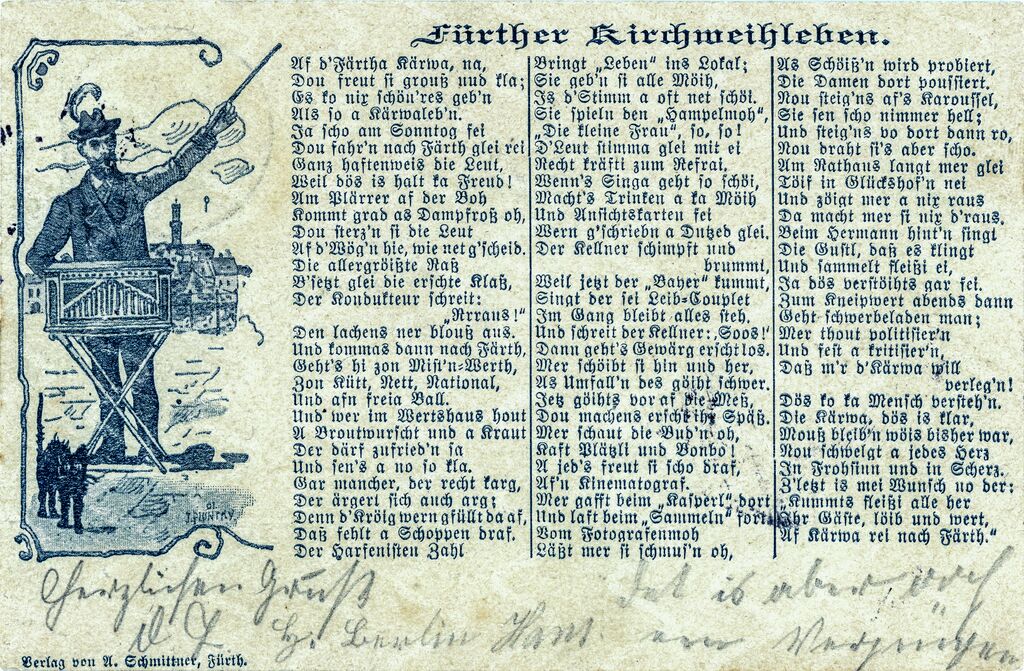 Fürther Kirchweihleben.
Af d'Färtha Kärwa, na,
Dou freut si grouß und kla;
Es ko nix schön'res geb'n
Als so a Kärwaleb'n.
Ja scho am Sonntog fei
Dou fahr'n nach Färth glei rei
Ganz haftenweis die Leut,
Weil dös is halt ka Freud!
Am Plärrer af der Boh
Kommt grad as Dampfroß oh,
Dou sterz'n si die Leut
Af d'Wög'n hie, wie net g'scheid.
Die allergröißte Raß
B'setzt glei die erschte Klaß,
Der Kondukteur schreit:
„Rrraus!"
Den lachens ner blouß aus.
Und kommas dann nach Färth,
Geht's hi zon Mist'n-Werth,
Zon Kütt, Nett, National,
Und afn freia Ball.
Und wer im Wertshaus hout
A Broutwurscht und a Kraut
Der därf zufried'n sa
Und sen's a no so kla.
Gar mancher, der recht karg,
Der ärgert sich auch arg;
Denn d'Kröig wern gfüllt da af,
Daß fehlt a Schoppen draf.
Der Harfenisten Zahl
Bringt „Leben" ins Lokal;
Sie geb'n si alle Möih,
Is d'Stimm a oft net schöi.
Sie spieln den „Hampelmoh",
„Die kleine Frau", so, so!
D'Leut stimma glei mit ei
Recht kräfti zum Refrai.
Wenn's Singa geht so schöi,
Macht's Trinken a ka Möih
Und Ansichtskarten fei
Wern g'schriebn a Dutzed glei.
Der Kellner schimpft und
brummt,
Weil jetzt der „Bayer" kummt,
Singt der sei Leib-Couplet
Im Gang bleibt alles steh,
Und schreit der Kellner: „Soos!"
Dann geht's Gewärg erscht los.
Mer schöibt si hin und her,
As Umfall'n des göiht schwer.
Jetz göihts vor af die Meß,
Dou machens erscht ihr Späß.
Mer schaut die Bud'n oh,
Kaft Plätzli und Bonbo!
A jed's freut si scho draf,
Af'n Kinematograf.
Mer gafft beim „Kasperl" dort
Und laft beim „Sammeln" fort.
Vom Fotografenmoh
Läßt mer si schmus'n oh,
As Schöiß'n wird probiert,
Die Damen dort poussiert.
Nou steig'ns af's Karoussel,
Sie sen scho nimmer hell;
Und steig'ns vo dort dann ro,
Nou draht si's aber scho.
Am Rathaus langt mer glei
Töif in Glückshof'n nei
Und zöigt mer a nix raus
Da macht mer si nix d'raus.
Beim Hermann hint'n singt
Die Gustl, daß es klingt
Und sammelt fleißi ei,
Ja dös verstöihts gar fei.
Zum Kneipwert abends dann
Geht schwerbeladen man;
Mer thout politisier'n
Und fest a kritisier'n,
Daß m'r d'Kärwa will
verleg'n!
Dös ko ka Mensch versteh'n.
Die Kärwa, dös is klar,
Mouß bleib'n wöis bisher war,
Nou schwelgt a jedes Herz
In Frohsinn und in Scherz.
Z'letzt is mei Wunsch no der:
„Kummts fleißi alle her
Ihr Gäste, löib und wert,
Af Kärwa rei nach Färth."
Herzlichen Gruß
Berlin Hans
Det is aber och
een Vergnügen
Verlag von A. Schmittner, Fürth.